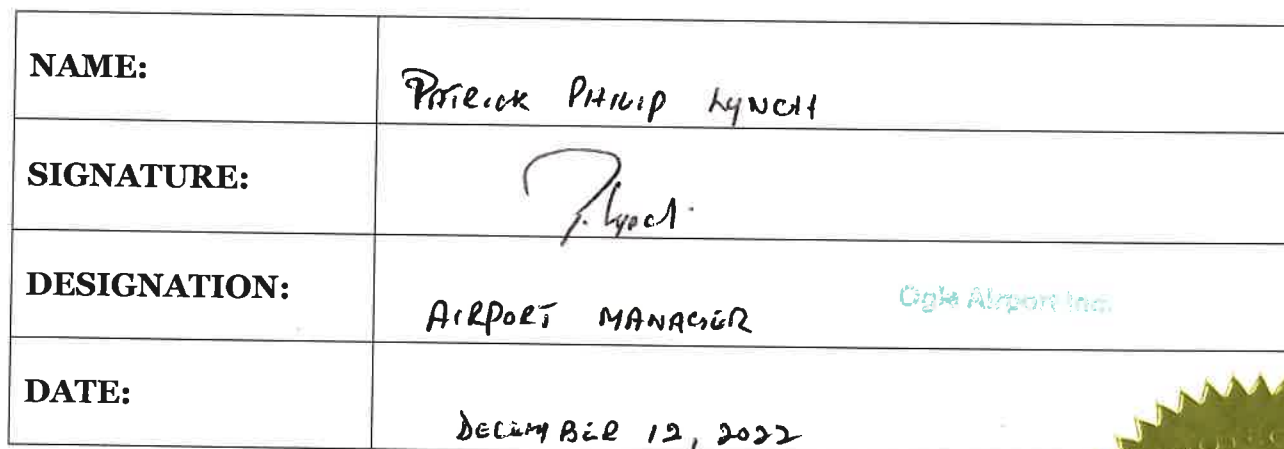 NAME: PATRICK PHILIP LYNCH
SIGNATURE: P. Lynch
DESIGNATION: AIRPORT MANAGER Ogle Airport Inc.
DATE: DECEMBER 12, 2022